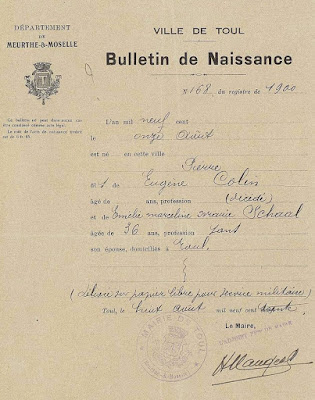 DÉPARTEMENT
DE
MEURTHE-&-MOSELLE
VILLE DE TOUL
Bulletin de Naissance
N° 168 du registre de 1900
Ce bulletin ne peut dans aucun cas
être considéré comme acte légal.
Le coût de l'acte de naissance
est de
L'an mil neuf cent
le onze Août
est né en cette ville
Pierre
fils de Eugène Colin
âgé de ans, profession (décédé)
et de Emélie marceline marie Schaal
âgée de 36 ans, profession sans
son épouse, domiciliés à Toul.
(Délivré sur papier libre pour service militaire)
Toul, le août mil neuf cent
Le Maire,
MAIRIE DE TOUL